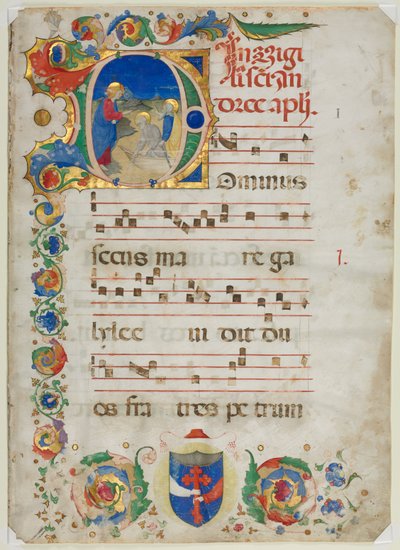 In vigi
lia sci An
dree apli.
I
DOminus
secus ma re ga
1.
lylee vi dit du
os fra tres pe trum